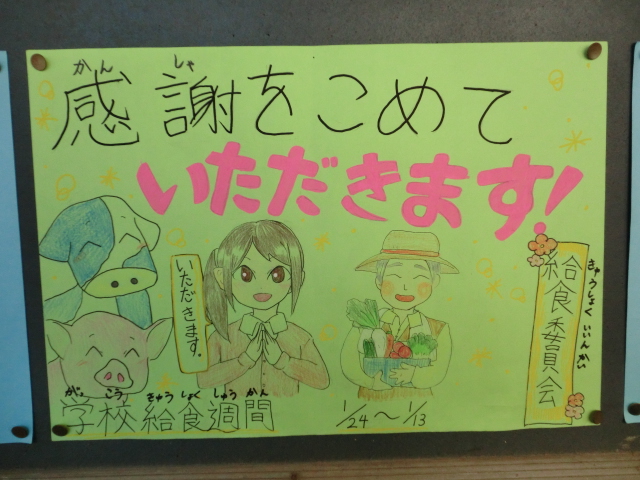 かん しゃ
感謝をこめて
いただきます!
いただきます。
きゅうしょくいいんかい
給食委員会
がっ こう きゅう しょく しゅう かん
学校給食週間
1/24〜1/13